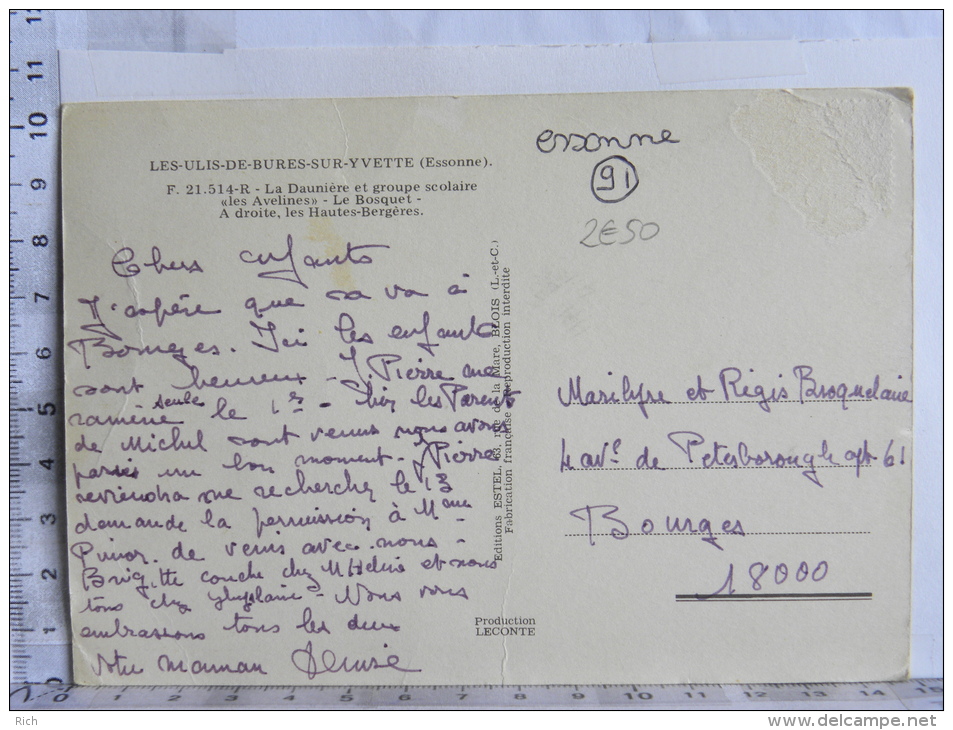 LES-ULIS-DE-BURES-SUR-YVETTE (Essonne).
F. 21.514-R - La Daunière et groupe scolaire
«les Avelines» - Le Bosquet -
A droite, les Hautes-Bergères.
essonne
91
2€50
Chers enfants
J'espère que sa va à
Bourges. Ici les enfants
sont heureux - J Pierre me
ramène seule le 1er - Hier les Parents
de Michel sont venus nous avons
passés un bon moment. J Pierre
reviendra me rechercher le 13
demande la permission à Mme
de venir avec nous -
Brigitte couche chez et nous
tous chez Ghyslaine - Nous vous
embrassons tous les deux
Votre maman Denise
Editions ESTEL, 63, rue de la Mare, BLOIS (L.-et-C.)
Fabrication française - Reproduction interdite
Production
LECONTE
Marilyse et Régis Broquelaire
4 av. de Peterborough apt 61
Bourges
18000
0 1 2 3 4 5 6 7 8 9 10 11 12 13 14 15
0 1 2 3 4 5 6 7 8 9 10 11 12
Rich
www.delcampe.net